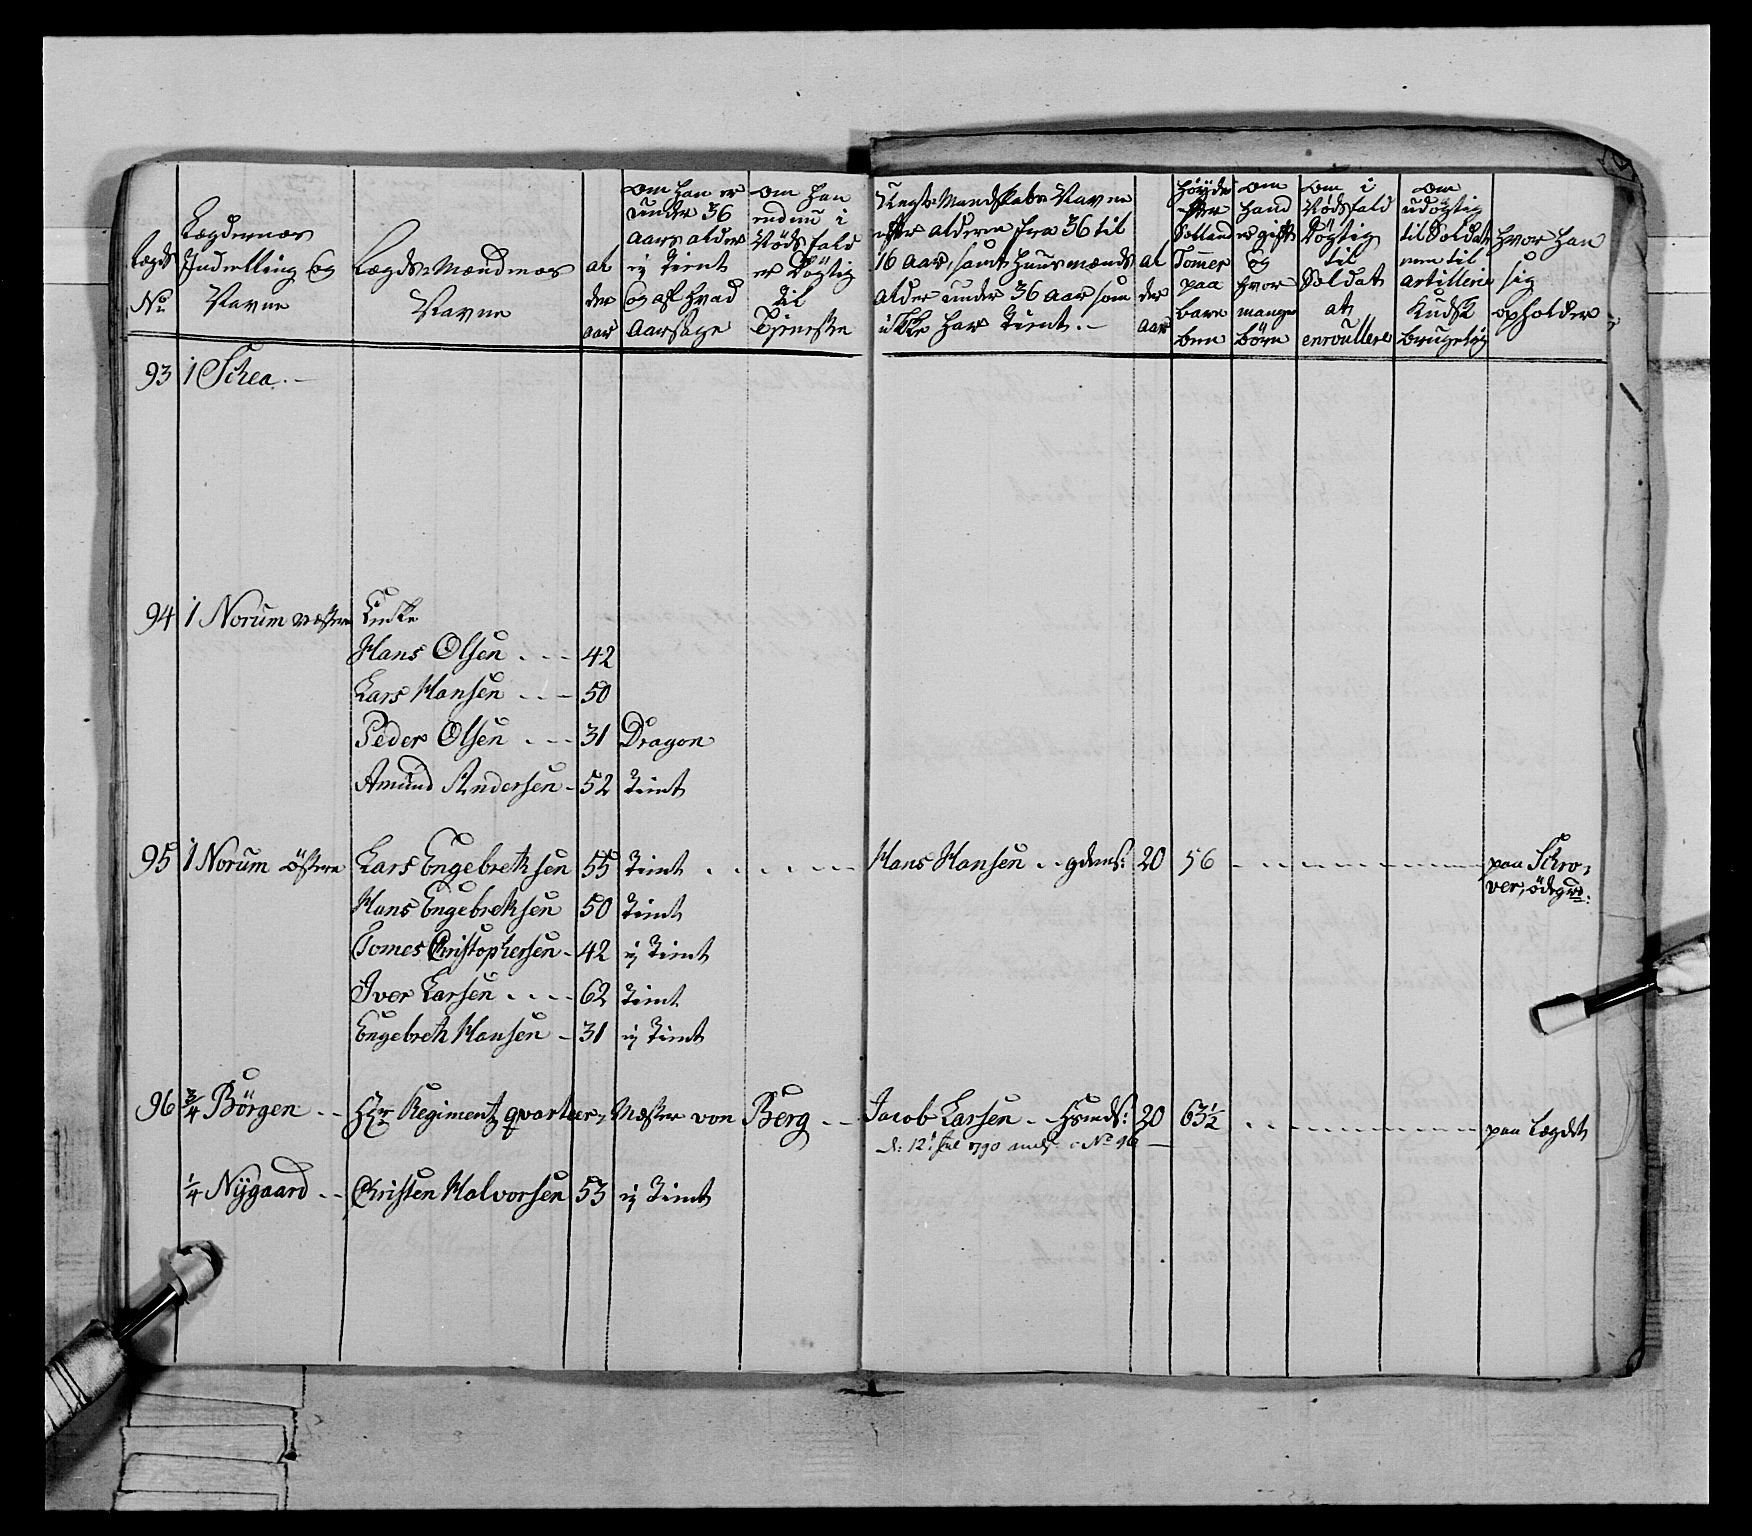 Lægds
No
Lægdernes
Inddelling Og
Navne
Lægds-Mændenes
Navne
al
der
aar
om han er
under 36
aars alder
ej Tient
Og af Hvad
Aarsage
om han
endnu i
Nödsfald
er Dögtig
til
Tjeneste
Ungt-Mandskabs Navne
efter alderen fra 36 til
16 aar, samt Huusmænds
alder under 36 aar som
ikke har Tient.
al
der
aar
Høyde
efter
Siælland
Tommer
paa
bare
been
om
hand
er gift
Og
Hvor
mange
börn
om i
Nödsfald
Dögtig
til
Soldat
at
enroullere
om
udögtig
til Soldat
men til
artillerie
Kudsk
brugelig
Hvor Han
sig
opholder
93 1 Schea.
94 1 Norum Westre Enke
Hans Olsen 42
Lars Hansen 50
Peder Olsen 31 Dragon
Amund Andersen 52 Tient
95 1 Norum Östere Lars Engebrethsen 55 Tient Hans Hansen gdms: 20 56 paa Schro-
ver, ödegrd:
Hans Engebrethsen 50 Tient
Tomes Christophersen 42 ej Tient
Iver Larsen 62 Tient
Engebreth Hansen 31 ej Tient
96 3/4 Börgen Hr Regimentz quarteer-Mester von Berg Jacob Larsen Hsmds: 20 63 1/2 paa Lægdet
d: 12t Jul 1790 No 46
1/4 Nÿgaard Christen Halvorsen 53 ej Tient